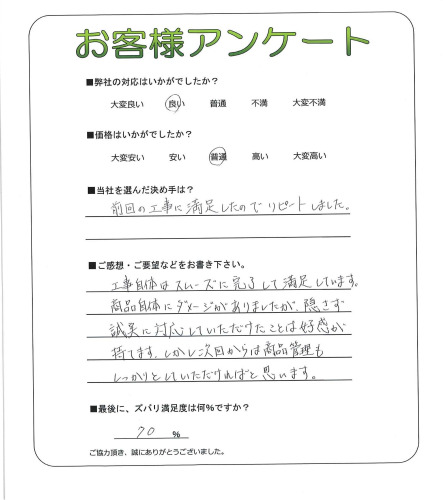 お客様アンケート
■弊社の対応はいかがでしたか？
大変良い 良い 普通 不満 大変不満
■価格はいかがでしたか？
大変安い 安い 普通 高い 大変高い
■当社を選んだ決め手は？
前回の工事に満足したのでリピートしました。
■ご感想・ご要望などをお書き下さい。
工事自体はスムーズに完了して満足しています。
商品自体にダメージがありましたが、隠さず
誠実に対応していただけたことは好感が
持てます。しかし次回からは商品管理も
しっかりとしていただければと思います。
■最後に、ズバリ満足度は何％ですか？
70 ％
ご協力頂き、誠にありがとうございました。